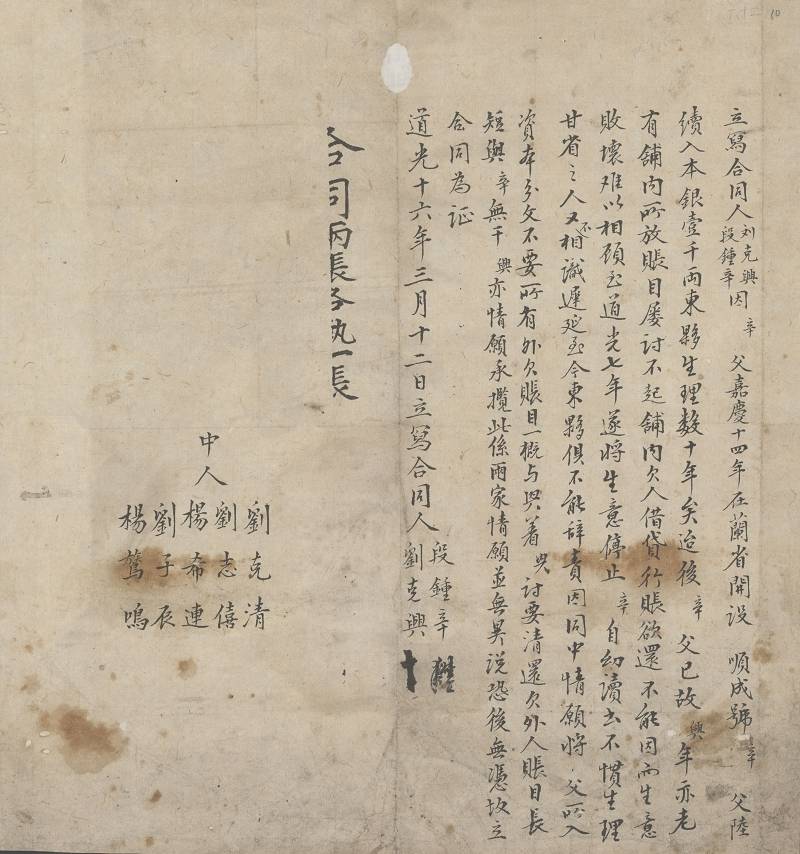 立寫合同人刘克興段鍾辛因辛父嘉慶十四年在蘭省開設順成號辛父陸
續入本銀壹千兩東夥生理数十年矣迨後辛父已故興年亦老
有舖内所放賬目屡討不起舖内欠人借貸行賬欲還不能因而生意
敗壞难以相顧至道光七年遂将生意停止辛自幼讀书不慣生理
甘省之人又不相識遲延至今東夥俱不能辞責因同中情願将父所入
資本分文不要所有外欠賬目一概与興着興討要清還欠外人賬目長
短與辛無干興亦情願承攬此係兩家情願並無異说恐後無憑故立
合同為证
道光十六年三月十二日立寫合同人段鍾辛劉克興十
合同兩張各执一張
中人
劉克清
劉志僖
楊希連
劉子辰
楊鳴